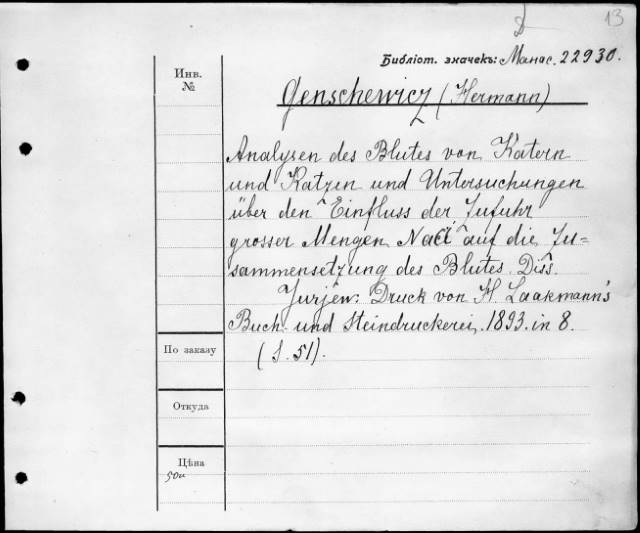 13
Библіот. значекъ: Манас. 22930.
Инв.
№
Genschewicz (Hermann)
Analysen des Blutes von Katern
und Katzen und Untersuchungen
über den Einfluss der Zufuhr
grosser Mengen NaCl auf die Zu=
sammensetzung des Blutes. Diss.
Jurjew: Druck von H. Laakmann's
Buch- und Steindruckerei. 1893. in 8.
(S. 51).
По заказу
Откуда
Цѣна